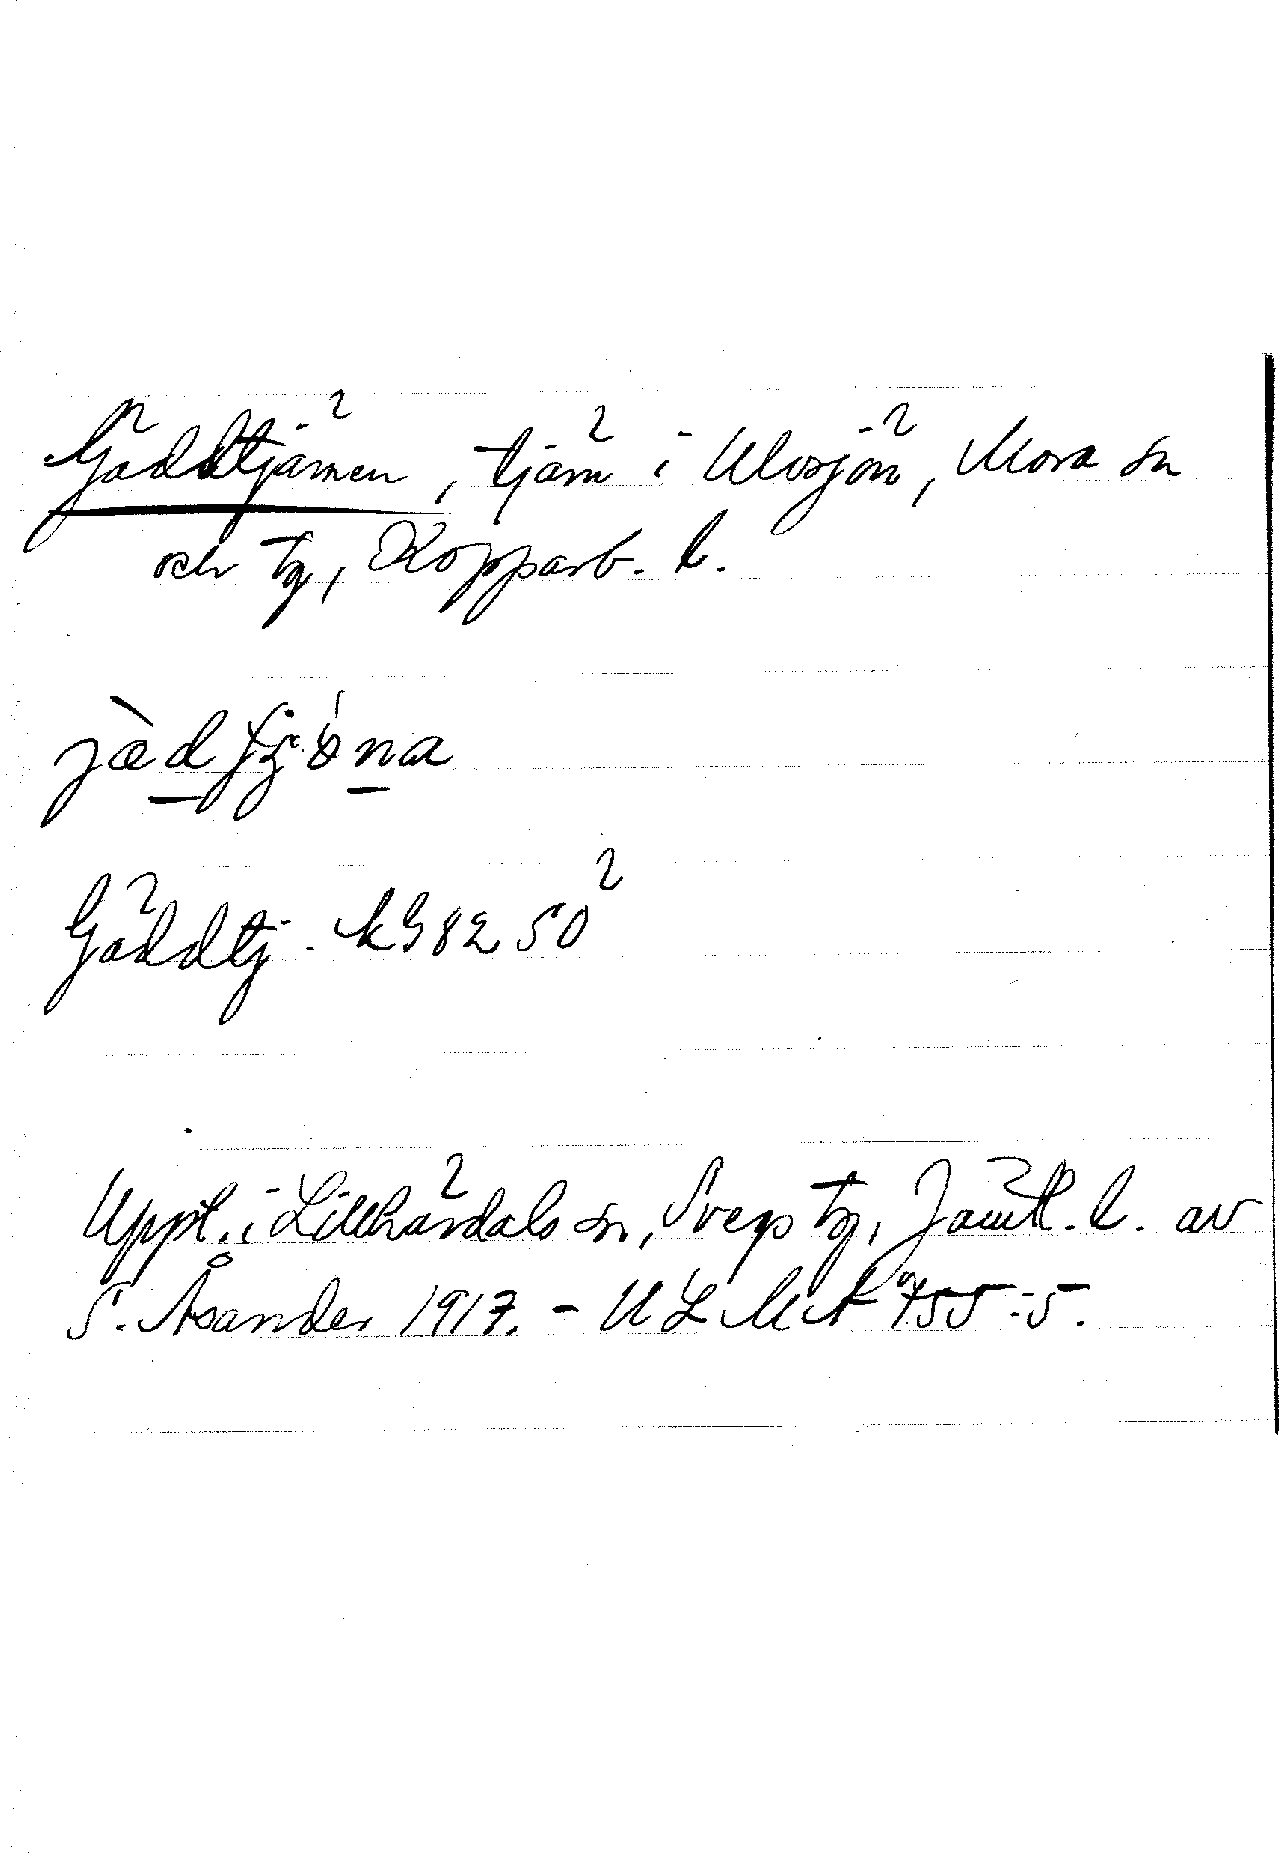 Gäddtjärnen, tjärn i Ulvsjön, Mora sn
och tg, Kopparb. l.
Gäddtj. k G 82 SO
Uppt. i Lillhärdals sn, Svegs tg, Jämtl. l. av
S. Åsander 1917. – ULMA 755:5.